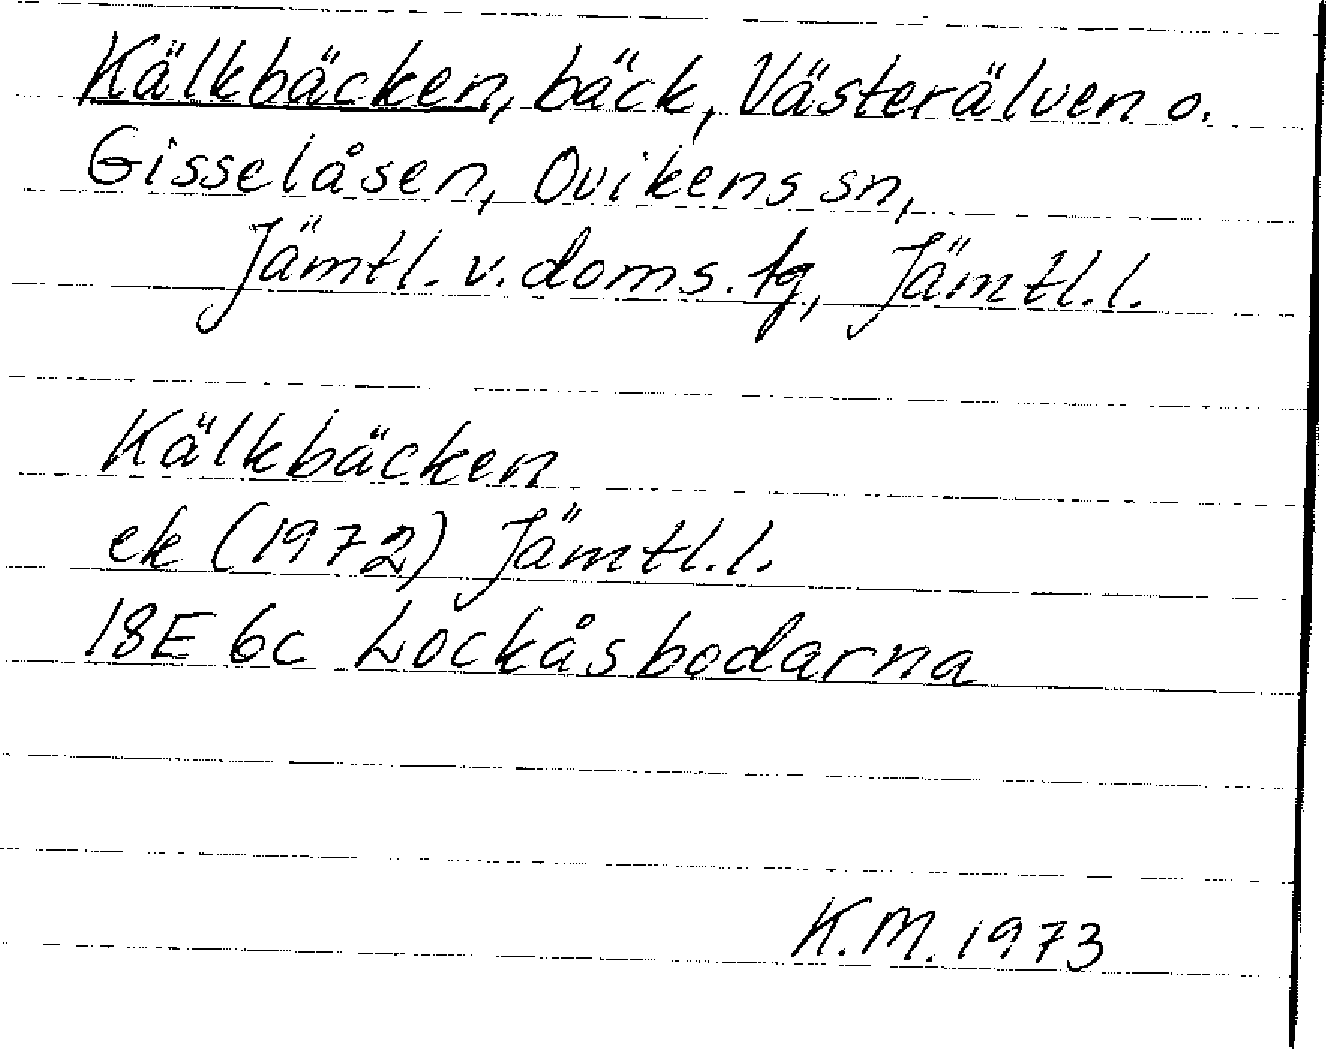 Kälkbäcken, bäck, Västerälven o.
Gisselåsen, Ovikens sn,
Jämtl. v. doms. tg, Jämtl. l.
Kälkbäcken
ek (1972) Jämtl. l.
18E 6c Lockåsbodarna
K.M. 1973